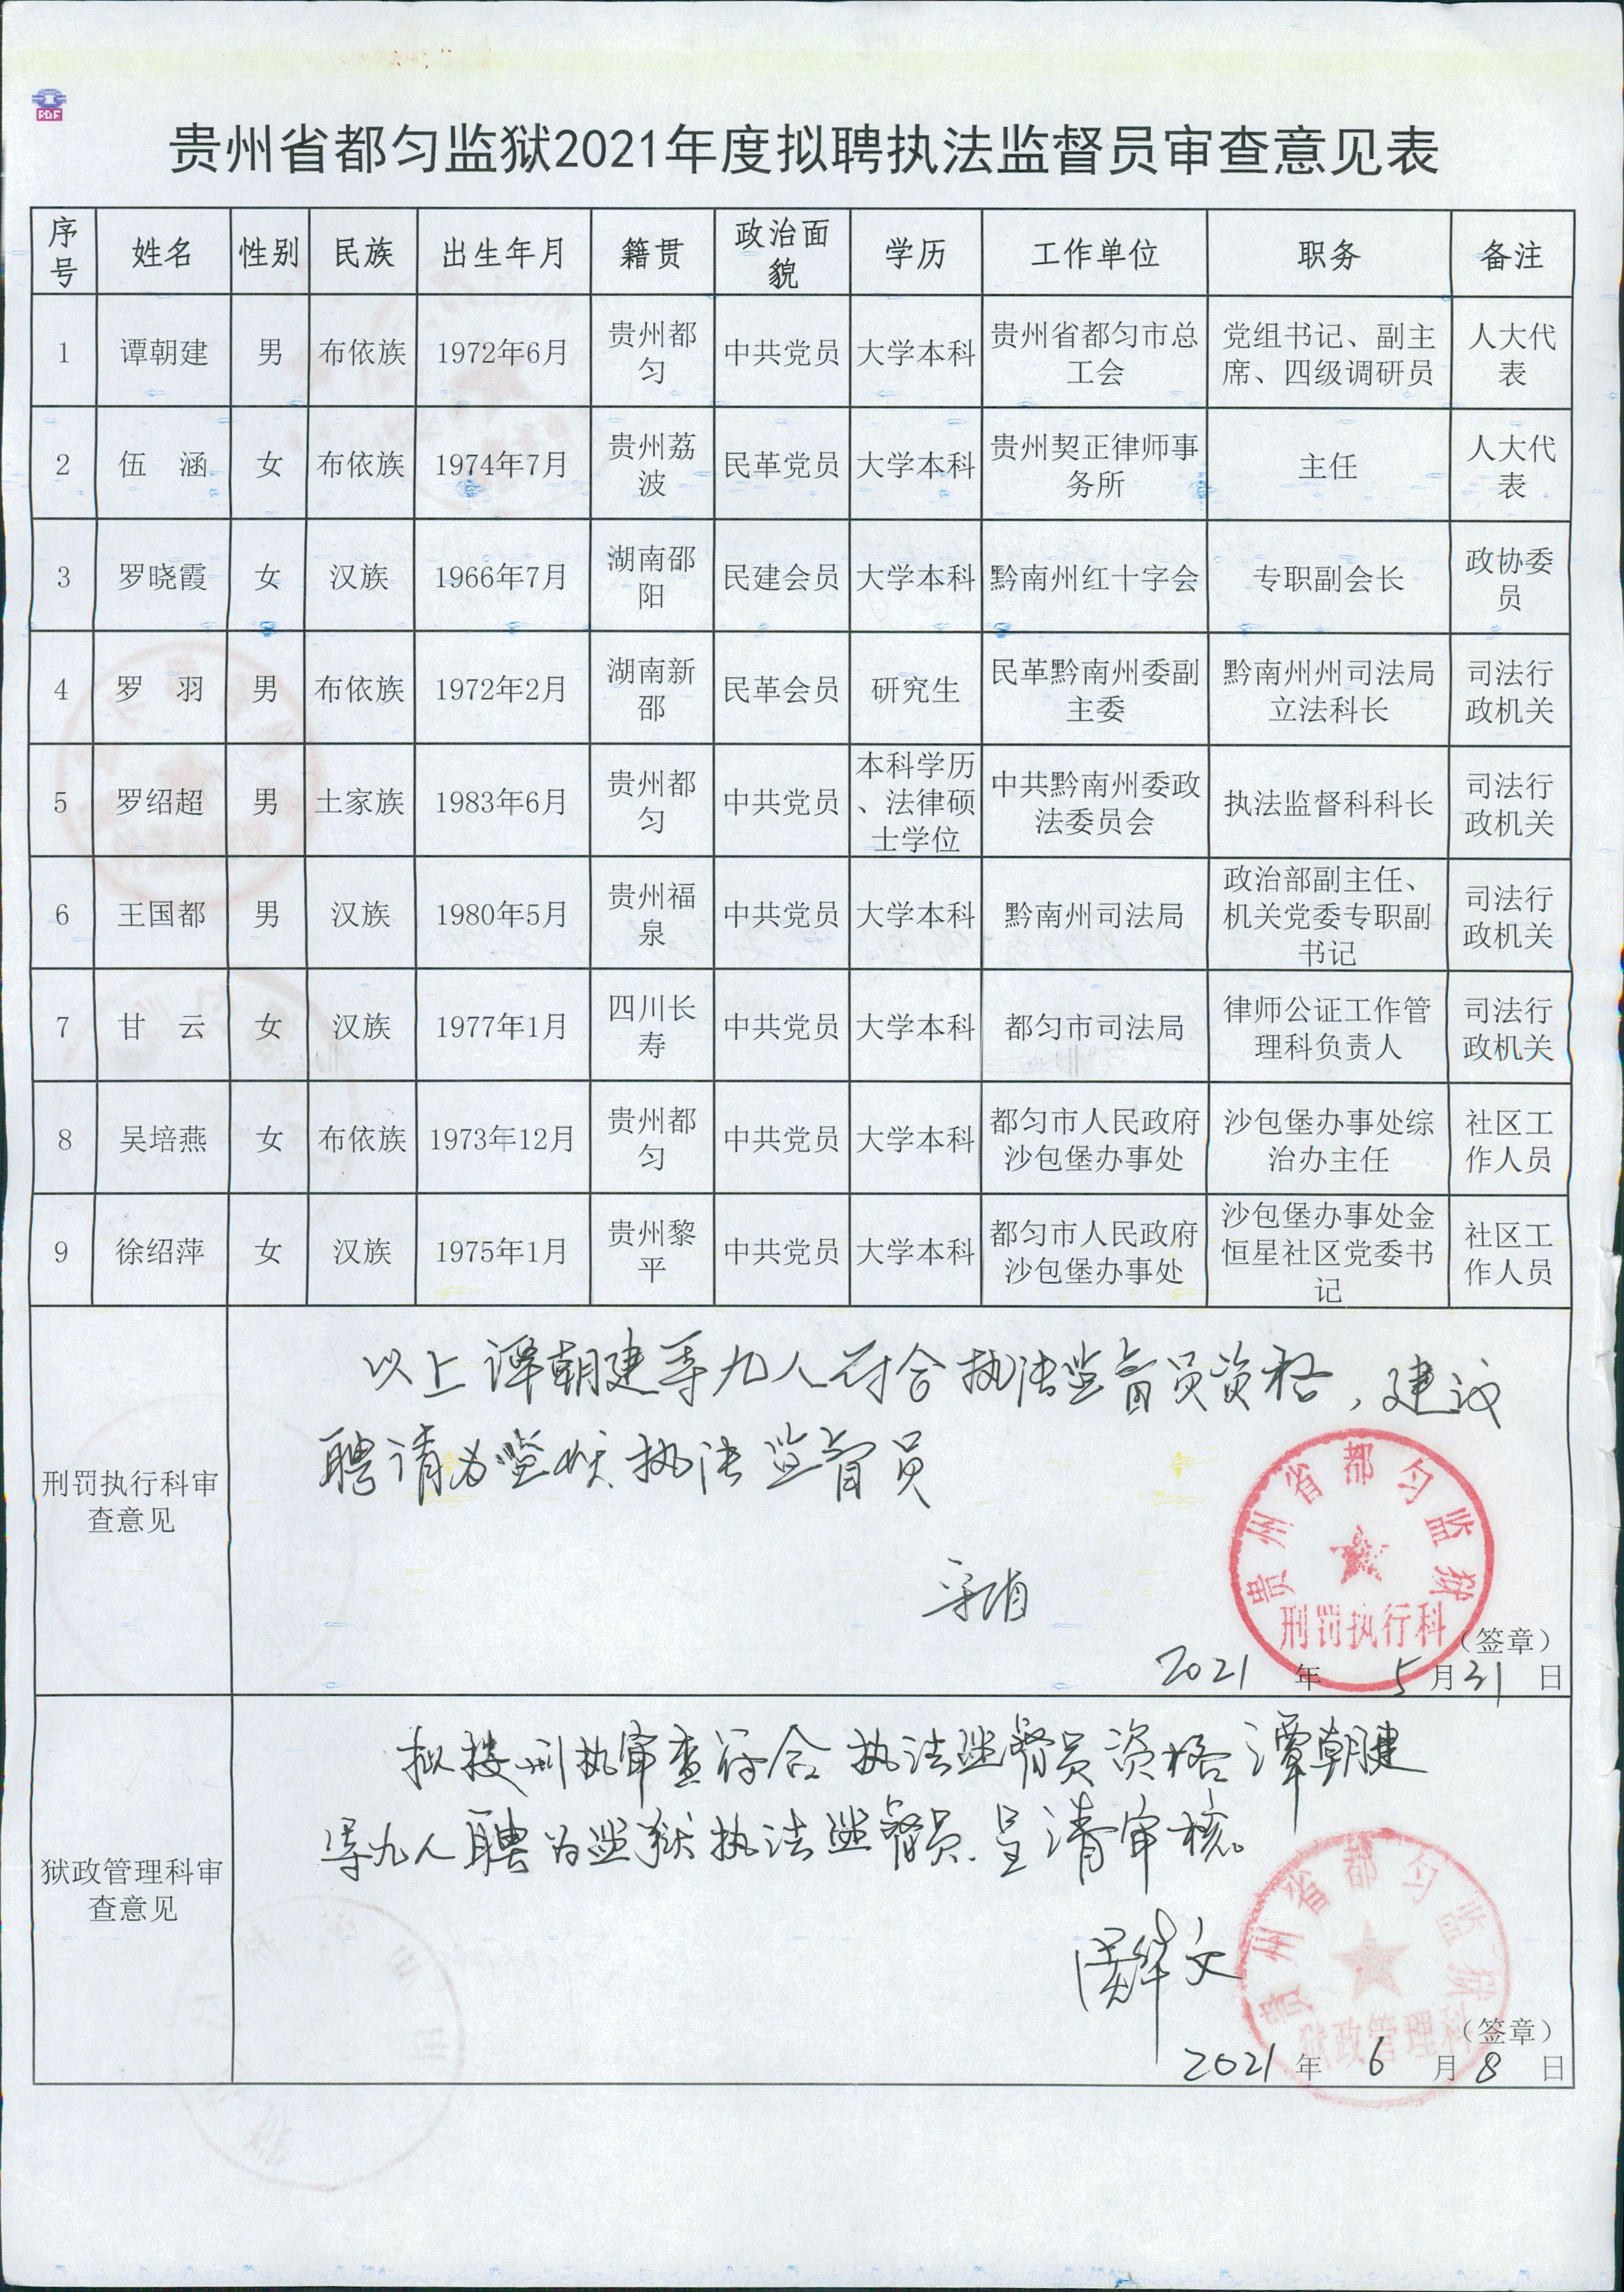 贵州省都匀监狱2021年度拟聘执法监督员审查意见表
序号 姓名 性别 民族 出生年月 籍贯 政治面貌 学历 工作单位 职务 备注
1 谭朝建 男 布依族 1972年6月 贵州都匀 中共党员 大学本科 贵州省都匀市总工会 党组书记、副主席、四级调研员 人大代表
2 伍 涵 女 布依族 1974年7月 贵州荔波 民革党员 大学本科 贵州契正律师事务所 主任 人大代表
3 罗晓霞 女 汉族 1966年7月 湖南邵阳 民建会员 大学本科 黔南州红十字会 专职副会长 政协委员
4 罗 羽 男 布依族 1972年2月 湖南新邵 民革会员 研究生 民革黔南州委副主委 黔南州州司法局立法科长 司法行政机关
5 罗绍超 男 土家族 1983年6月 贵州都匀 中共党员 本科学历、法律硕士学位 中共黔南州委政法委员会 执法监督科科长 司法行政机关
6 王国都 男 汉族 1980年5月 贵州福泉 中共党员 大学本科 黔南州司法局 政治部副主任、机关党委专职副书记 司法行政机关
7 甘 云 女 汉族 1977年1月 四川长寿 中共党员 大学本科 都匀市司法局 律师公证工作管理科负责人 司法行政机关
8 吴培燕 女 布依族 1973年12月 贵州都匀 中共党员 大学本科 都匀市人民政府沙包堡办事处 沙包堡办事处综治办主任 社区工作人员
9 徐绍萍 女 汉族 1975年1月 贵州黎平 中共党员 大学本科 都匀市人民政府沙包堡办事处 沙包堡办事处金恒星社区党委书记 社区工作人员
刑罚执行科审查意见
以上谭朝建等九人符合执法监督员资格，建议
聘请为监狱执法监督员
贵州省都匀监狱
刑罚执行科
（签章）
2021 年 5 月 31 日
狱政管理科审查意见
拟按刑执审查符合执法监督员资格谭朝建
等九人聘为监狱执法监督员.呈请审核。
贵州省都匀监狱
狱政管理科
（签章）
2021 年 6 月 8 日